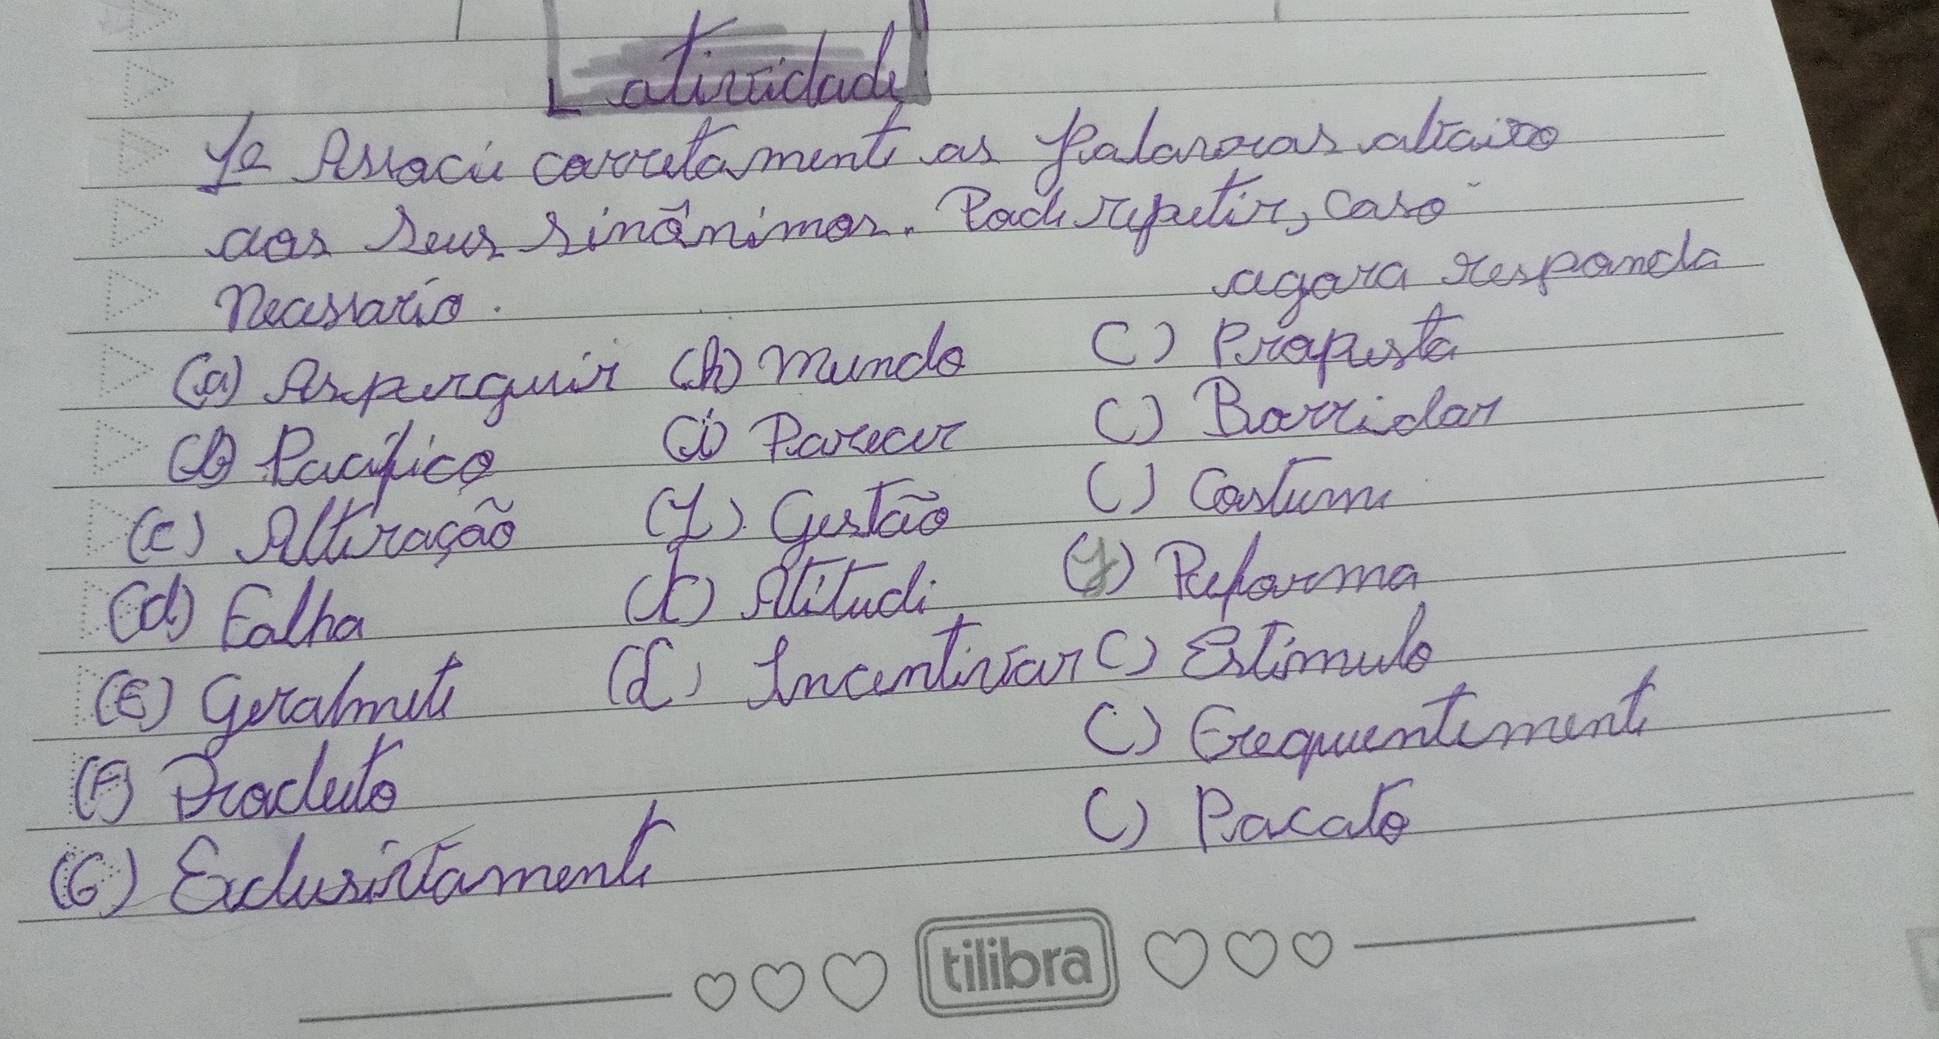 atividade
1º Associe corretamente as palavras abaixo
aos seus sinônimos. Pode repetir, caso
necessario.
agora responda
(a) Asperguir (h) mundo () Proposta
(B) Pacífico (i) Parecer () Borridar
(c) Alteração (J) Gestão () Costume
(d) Falha (k) Atitude (J) Reforma
(E) Geralmete (L) Incentivar () Estimulo
(F) Produto () Frequentemente
(G) Exclusivamente () Pacato
tilibra